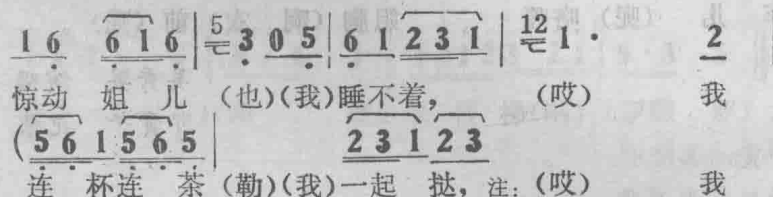 1 6 6 1 6 | 5 3 0 5 | 6 1 2 3 1 | 12 1 · 2
惊动 姐 儿 (也)(我)睡不着, (哎) 我
(5 6 1 5 6 5 | 2 3 1 2 3
连 杯连 茶 (勒)(我)一起 挞, 注: (哎) 我